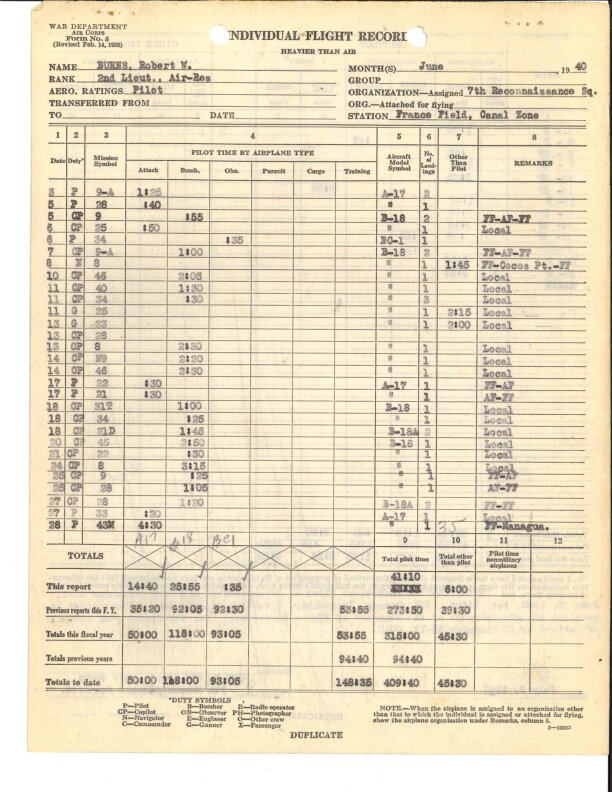 WAR DEPARTMENT
AIR CORPS
FORM NO. 5
(Revised Feb. 14, 1938)
INDIVIDUAL FLIGHT RECORD
HEAVIER THAN AIR
NAME BURNS, Robert W. MONTH(S) June 1940
RANK 2nd Lieut., Air-Res GROUP
AERO. RATINGS Pilot ORGANIZATION—Assigned 7th Reconnaissance Sq.
TRANSFERRED FROM ORG.—Attached for flying
TO DATE STATION France Field, Canal Zone
1 2 3 4 5 6 7 8
Date Duty* Mission Symbol PILOT TIME BY AIRPLANE TYPE Aircraft Model Symbol No. of Landings Other Than Pilot REMARKS
Attack Bomb. Obs. Pursuit Cargo Training
3 P 9-A 1:25 A-17 2
5 P 28 :40 " 1
5 CP 9 :55 B-18 2 FF-AF-FF
6 CP 25 :50 " 1 Local
6 P 34 :35 BC-1 1
7 CP 9-A 1:00 B-18 2 FF-AF-FF
8 N 8 " 1 1:45 FF-Cocos Pt.-FF
10 CP 46 2:05 " 1 Local
11 CP 40 1:30 " 1 Local
11 CP 34 :30 " 3 Local
11 G 25 " 1 2:15 Local
13 G 23 " 1 2:00 Local
13 CP 28
13 CP 8 2:30 " 1 Local
14 CP N9 2:20 " 1 Local
14 CP 46 2:30 " 1 Local
17 P 22 :30 A-17 1 FF-AF
17 P 21 :30 " 1 AF-FF
18 CP 31T 1:00 B-18 1 Local
18 CP 34 :25 " 1 Local
18 CP 21D 1:45 B-18A 2 Local
20 CP 45 2:50 B-18 1 Local
21 CP 22 :30 " 1 Local
24 CP 8 3:15 " 1 Local
25 CP 9 :25 " 1 FF-AF
25 CP 28 1:05 " 1 AF-FF
27 CP 28 1:20 B-18A 2 FF-FF
27 P 33 :20 A-17 1 Local
28 P 43N 4:30 " 1 FF-Managua.
A17 B18 BC1 35
9 10 11 12
TOTALS Total pilot time Total other than pilot Pilot time nonmilitary airplanes
41:10
This report 14:40 25:55 :35 6:00
Previous reports this F. Y. 35:20 92:05 92:30 53:55 273:50 39:30
Totals this fiscal year 50:00 118:00 93:05 53:55 315:00 45:30
Totals previous years 94:40 94:40
Totals to date 50:00 118:00 93:05 148:35 409:40 45:30
*DUTY SYMBOLS
P—Pilot B—Bomber R—Radio operator
CP—Copilot OB—Observer PH—Photographer
N—Navigator E—Engineer O—Other crew
C—Commander G—Gunner X—Passenger
NOTE.—When the airplane is assigned to an organization other
than that to which the individual is assigned or attached for flying,
show the airplane organization under Remarks, column 8.
DUPLICATE